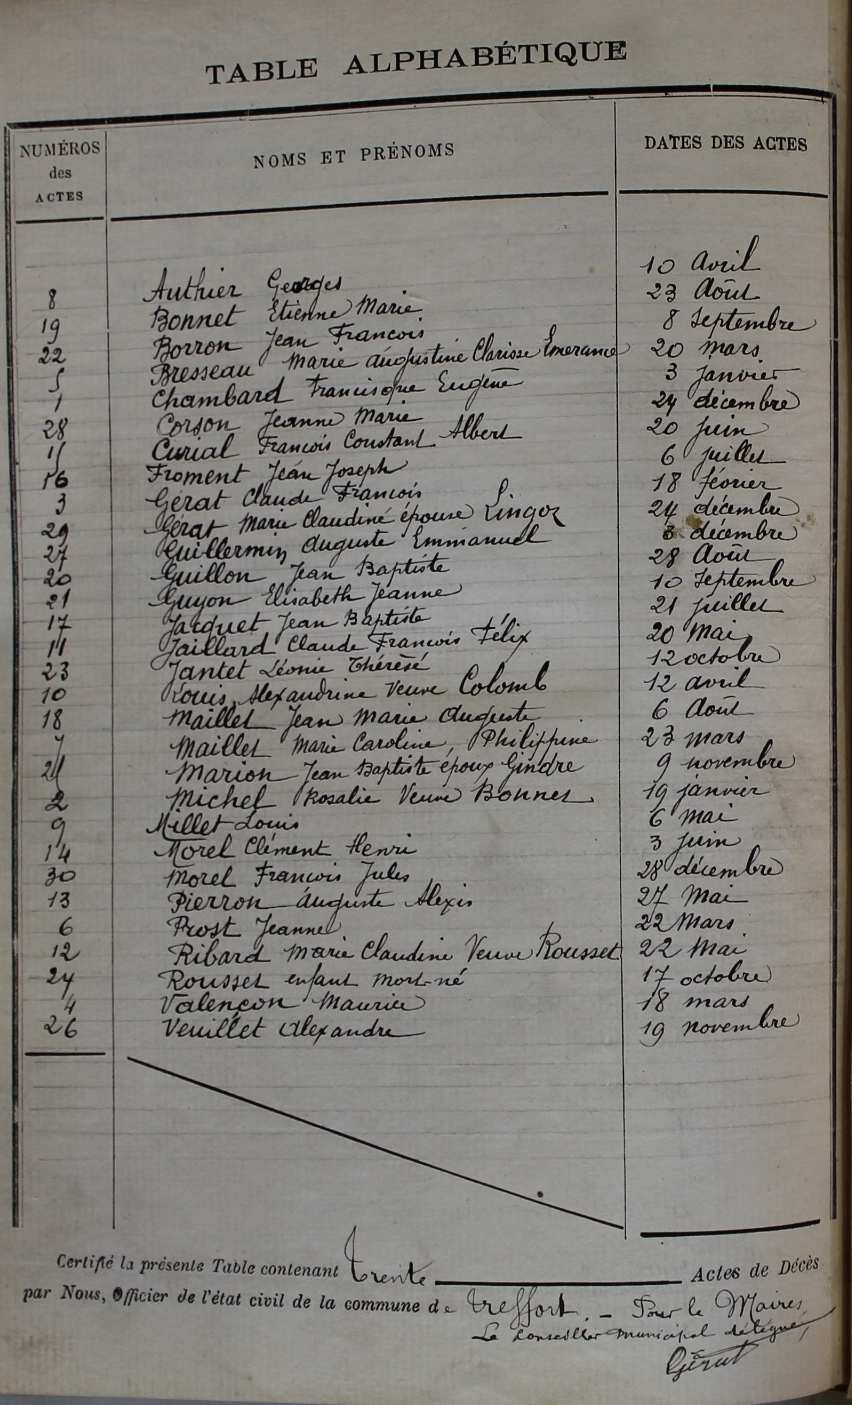 TABLE ALPHABÉTIQUE
NUMÉROS des ACTES NOMS ET PRÉNOMS DATES DES ACTES
8 Authier Georges 10 Avril
19 Bonnet Etienne Marie 23 Août
22 Borron Jean François 8 Septembre
5 Bresseau Marie Augustine Clarisse Emerance 20 mars
1 Chambard Francisque Eugène 3 janvier
28 Corson Jeanne Marie 24 décembre
15 Curial François Constant Albert 20 Juin
16 Froment Jean Joseph 6 juillet
3 Gérat Claude François 18 février
29 Gérat Marie Claudine épouse Lingoz 24 décembre
27 Guillermin Auguste Emmanuel décembre
20 Guillon Jean Baptiste 28 Août
21 Guyon Elisabeth Jeanne 10 Septembre
17 Jacquet Jean Baptiste 21 juillet
11 Jaillard Claude François Félix 20 Mai
23 Jantet Léonie Thérèse 12 octobre
10 Louis, Alexandrine Veuve Colomb 12 avril
18 Maillet Jean Marie Auguste 6 Août
7 Maillet Marie Caroline, Philippine 23 mars
25 Marion Jean Baptiste époux Gindre 9 novembre
2 Michel Rosalie Veuve Bonnet 19 janvier
9 Millet Louis 6 Mai
14 Morel Clément Henri 3 Juin
30 Morel François Jules 28 décembre
13 Pierron Auguste Alexis 27 Mai
6 Prost Jeanne 22 Mars
12 Ribard Marie Claudine Veuve Rousset 22 Mai
24 Rousset enfant mort-né 17 octobre
4 Valençon Maurice 18 mars
26 Veuillet Alexandre 19 novembre
Certifié la présente Table contenant Trente Actes de Décès
par Nous, Officier de l'état civil de la commune de Treffort. – Pour le Maire,
Le Conseiller municipal délégué,
Gérat